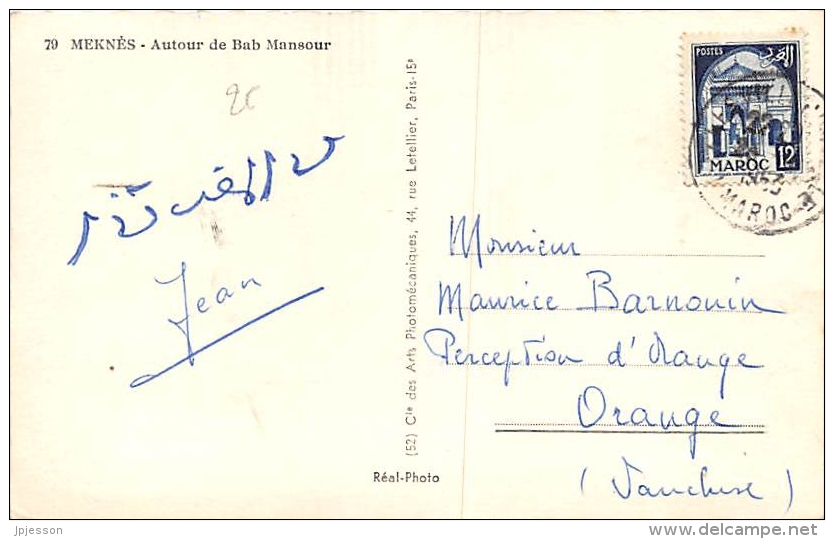 79 MEKNÈS - Autour de Bab Mansour
Jean
(52) Cie des Arts Photomécaniques, 44, rue Letellier, Paris-15e
Réal-Photo
POSTES
المغرب
MAROC 12
MAROC
Monsieur
Maurice Barnouin
Perception d'Orange
Orange
(Vaucluse)
jpjesson
www.delcampe.net